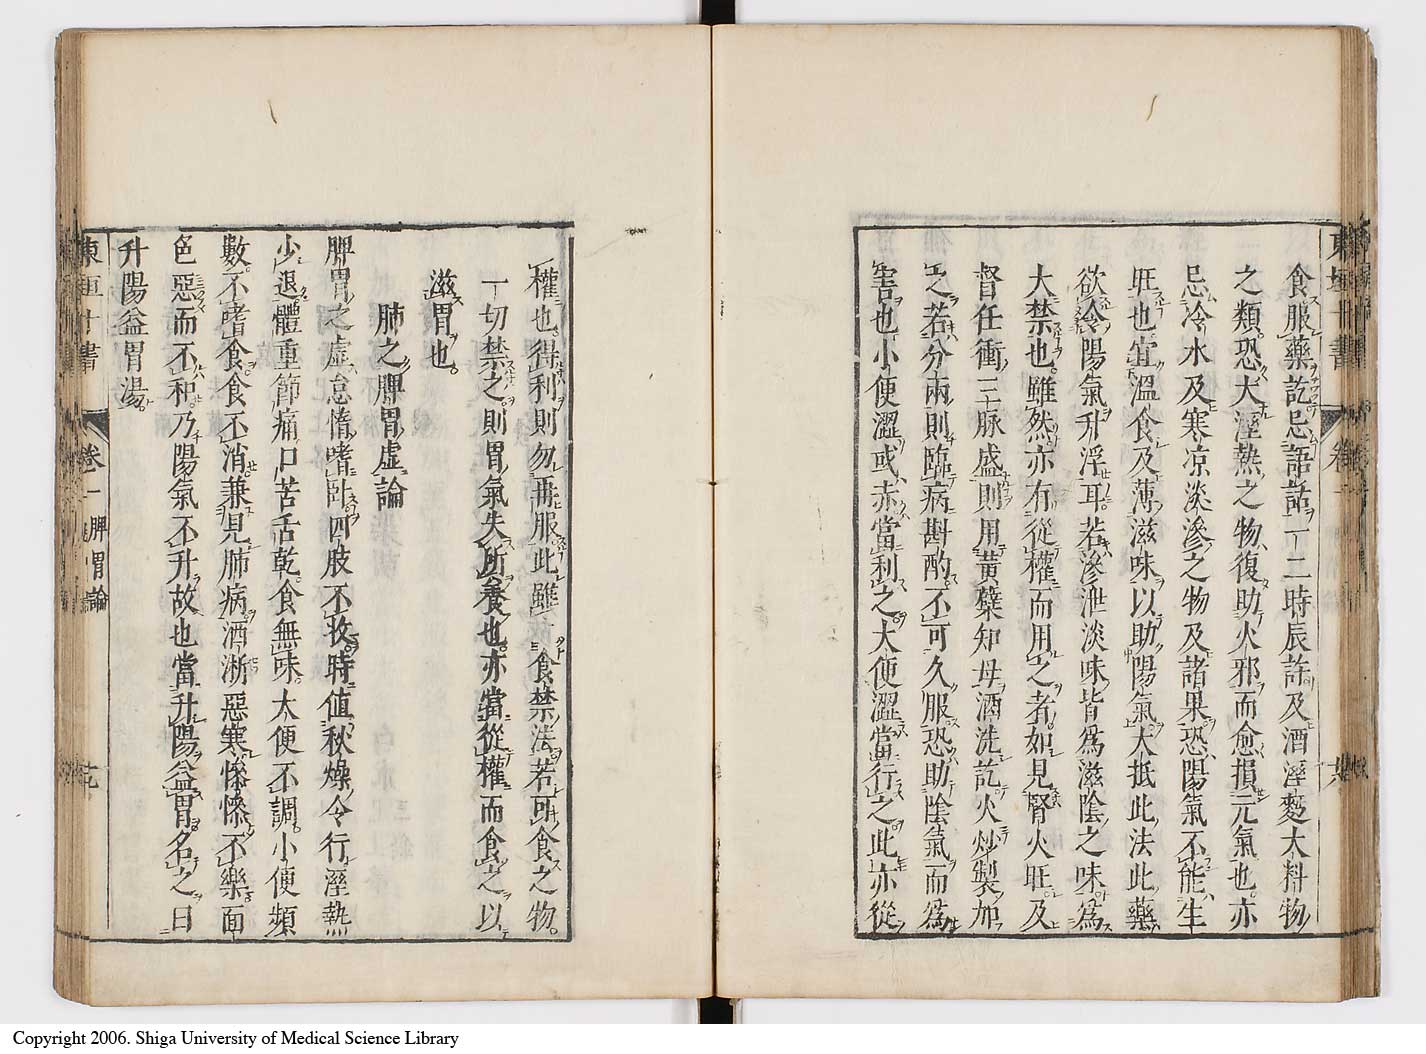 食服藥訖忌語話一二時辰許及酒溼麪大料物
之類恐大溼熱之物復助火邪而愈損元氣也亦
忌冷水及寒凉淡滲之物及諸果恐陽氣不能生
旺也宜溫食及薄滋味以助陽氣大抵此法此藥
欲令陽氣升浮耳若滲泄淡味皆爲滋陰之味爲
大禁也雖然亦有從權而用之者如見腎火旺及
督任衝三脉盛則用黄蘗知母酒洗訖火炒製加
之若分兩則臨病斟酌不可久服恐助陰氣而爲
害也小便澀或赤當利之大便澀當行之此亦從
權也得利則勿再服此雖立食禁法若可食之物
一切禁之則胃氣失所養也亦當從權而食之以
滋胃也
肺之脾胃虛論
脾胃之虛怠惰嗜卧四肢不收時値秋燥令行溼熱
少退體重節痛口苦舌乾食無味大便不調小便頻
數不嗜食食不消兼見肺病洒淅惡寒慘慘不樂面
色惡而不和乃陽氣不升故也當升陽益胃名之曰
升陽益胃湯
東垣十書
卷一
脾胃論
Copyright 2006. Shiga University of Medical Science Library